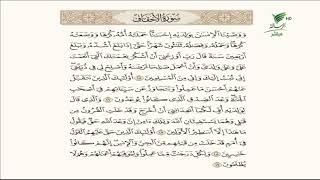 سُورَةُ الأَحْقَافِ
وَوَصَّيْنَا ٱلْإِنسَٰنَ بِوَٰلِدَيْهِ إِحْسَٰنًا حَمَلَتْهُ أُمُّهُۥ كُرْهًا وَوَضَعَتْهُ
كُرْهًا وَحَمْلُهُۥ وَفِصَٰلُهُۥ ثَلَٰثُونَ شَهْرًا حَتَّىٰٓ إِذَا بَلَغَ أَشُدَّهُۥ وَبَلَغَ
أَرْبَعِينَ سَنَةً قَالَ رَبِّ أَوْزِعْنِىٓ أَنْ أَشْكُرَ نِعْمَتَكَ ٱلَّتِىٓ أَنْعَمْتَ
عَلَىَّ وَعَلَىٰ وَٰلِدَىَّ وَأَنْ أَعْمَلَ صَٰلِحًا تَرْضَىٰهُ وَأَصْلِحْ لِى فِى ذُرِّيَّتِىٓ
إِنِّى تُبْتُ إِلَيْكَ وَإِنِّى مِنَ ٱلْمُسْلِمِينَ ۝ أُو۟لَٰٓئِكَ ٱلَّذِينَ نَتَقَبَّلُ
عَنْهُمْ أَحْسَنَ مَا عَمِلُوا۟ وَنَتَجَاوَزُ عَن سَيِّـَٔاتِهِمْ فِىٓ أَصْحَٰبِ
ٱلْجَنَّةِ وَعْدَ ٱلصِّدْقِ ٱلَّذِى كَانُوا۟ يُوعَدُونَ ۝ وَٱلَّذِى قَالَ
لِوَٰلِدَيْهِ أُفٍّ لَّكُمَآ أَتَعِدَانِنِىٓ أَنْ أُخْرَجَ وَقَدْ خَلَتِ ٱلْقُرُونُ مِن
قَبْلِى وَهُمَا يَسْتَغِيثَانِ ٱللَّهَ وَيْلَكَ ءَامِنْ إِنَّ وَعْدَ ٱللَّهِ حَقٌّ فَيَقُولُ
مَا هَٰذَآ إِلَّآ أَسَٰطِيرُ ٱلْأَوَّلِينَ ۝ أُو۟لَٰٓئِكَ ٱلَّذِينَ حَقَّ عَلَيْهِمُ ٱلْقَوْلُ
فِىٓ أُمَمٍ قَدْ خَلَتْ مِن قَبْلِهِم مِّنَ ٱلْجِنِّ وَٱلْإِنسِ إِنَّهُمْ كَانُوا۟
خَٰسِرِينَ ۝ وَلِكُلٍّ دَرَجَٰتٌ مِّمَّا عَمِلُوا۟ وَلِيُوَفِّيَهُمْ أَعْمَٰلَهُمْ وَهُمْ لَا
يُظْلَمُونَ ۝
HD